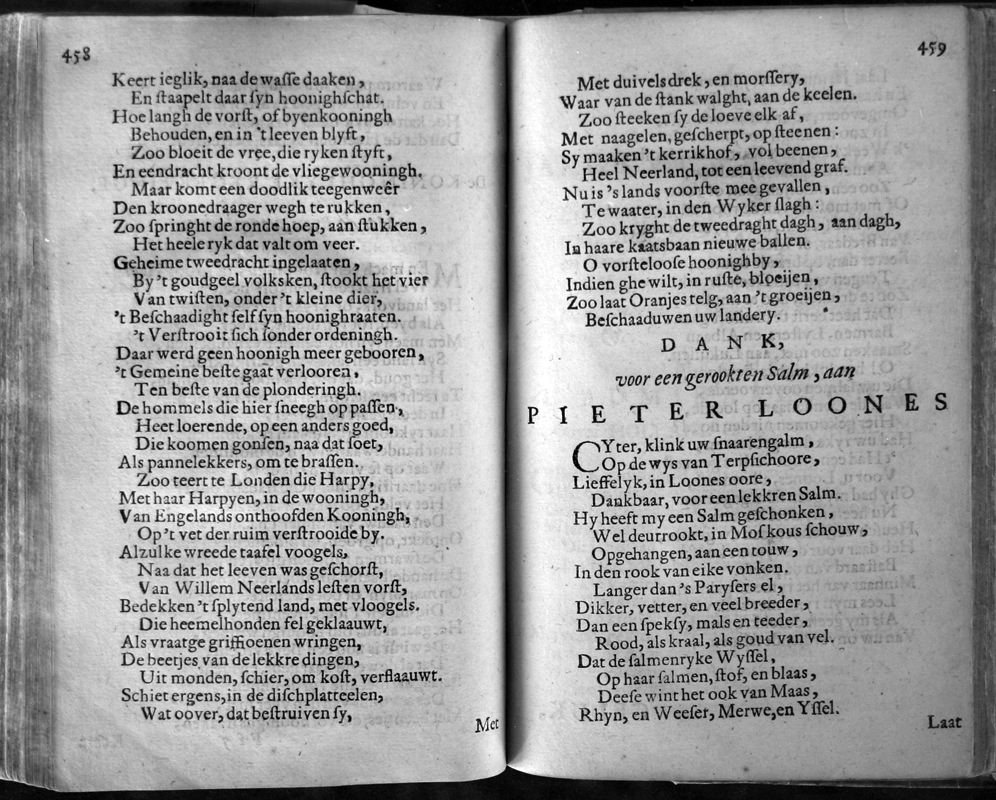 458
Keert ieglik, naa de waſſe daaken,
En ſtaapelt daar ſyn hoonighſchat.
Hoe langh de vorſt, of byenkooningh
Behouden, en in 't leeven blyft,
Zoo bloeit de vree, die ryken ſtyft,
En eendracht kroont de vliegewooningh.
Maar komt een doodlik teegenweêr
Den kroonedraager wegh te rukken,
Zoo ſpringht de ronde hoep, aan ſtukken,
Het heele ryk dat valt om veer.
Geheime tweedracht ingelaaten,
By 't goudgeel volksken, ſtookt het vier
Van twiſten, onder 't kleine dier,
't Beſchaadight ſelf ſyn hoonighraaten.
't Verſtrooit ſich ſonder ordeningh.
Daar werd geen hoonigh meer gebooren,
't Gemeine beſte gaat verlooren,
Ten beſte van de plonderingh.
De hommels die hier ſneegh op paſſen,
Heet loerende, op een anders goed,
Die koomen gonſen, naa dat ſoet,
Als pannelekkers, om te braſſen.
Zoo teert te Londen die Harpy,
Met haar Harpyen, in de wooningh,
Van Engelands onthoofden Kooningh,
Op 't vet der ruim verſtrooide by.
Alzulke wreede taafel voogels,
Naa dat het leeven was geſchorſt,
Van Willem Neerlands leſten vorſt,
Bedekken 't ſplytend land, met vloogels.
Die heemelhonden fel geklaauwt,
Als vraatge griffioenen wringen,
De beetjes van de lekkre dingen,
Uit monden, ſchier, om koſt, verflaauwt.
Schiet ergens, in de diſchplatteelen,
Wat oover, dat beſtruiven ſy,
Met
459
Met duivelsdrek, en morſſery,
Waar van de ſtank walght, aan de keelen.
Zoo ſteeken ſy de loeve elk af,
Met naagelen, geſcherpt, op ſteenen:
Sy maaken 't kerrikhof, vol beenen,
Heel Neerland, tot een leevend graf.
Nu is 's lands voorſte mee gevallen,
Te waater, in den Wyker ſlagh:
Zoo kryght de tweedraght dagh, aan dagh,
In haare kaatsbaan nieuwe ballen.
O vorſteloofe hoonighby,
Indien ghe wilt, in ruſte, bloeijen,
Zoo laat Oranjes telg, aan 't groeijen,
Beſchaaduwen uw landery.
DANK,
voor een gerookten Salm, aan
PIETER LOONES
CYter, klink uw ſnaarengalm,
Op de wys van Terpſichoore,
Lieffelyk, in Loones oore,
Dankbaar, voor een lekkren Salm.
Hy heeft my een Salm geſchonken,
Wel deurrookt, in Moſkous ſchouw,
Opgehangen, aan een touw,
In den rook van eike vonken.
Langer dan 's Paryſers el,
Dikker, vetter, en veel breeder,
Dan een ſpekſy, mals en teeder,
Rood, als kraal, als goud van vel.
Dat de ſalmenryke Wyſſel,
Op haar ſalmen, ſtof, en blaas,
Deeſe wint het ook van Maas,
Rhyn, en Weeſer, Merwe, en Yſſel.
Laat